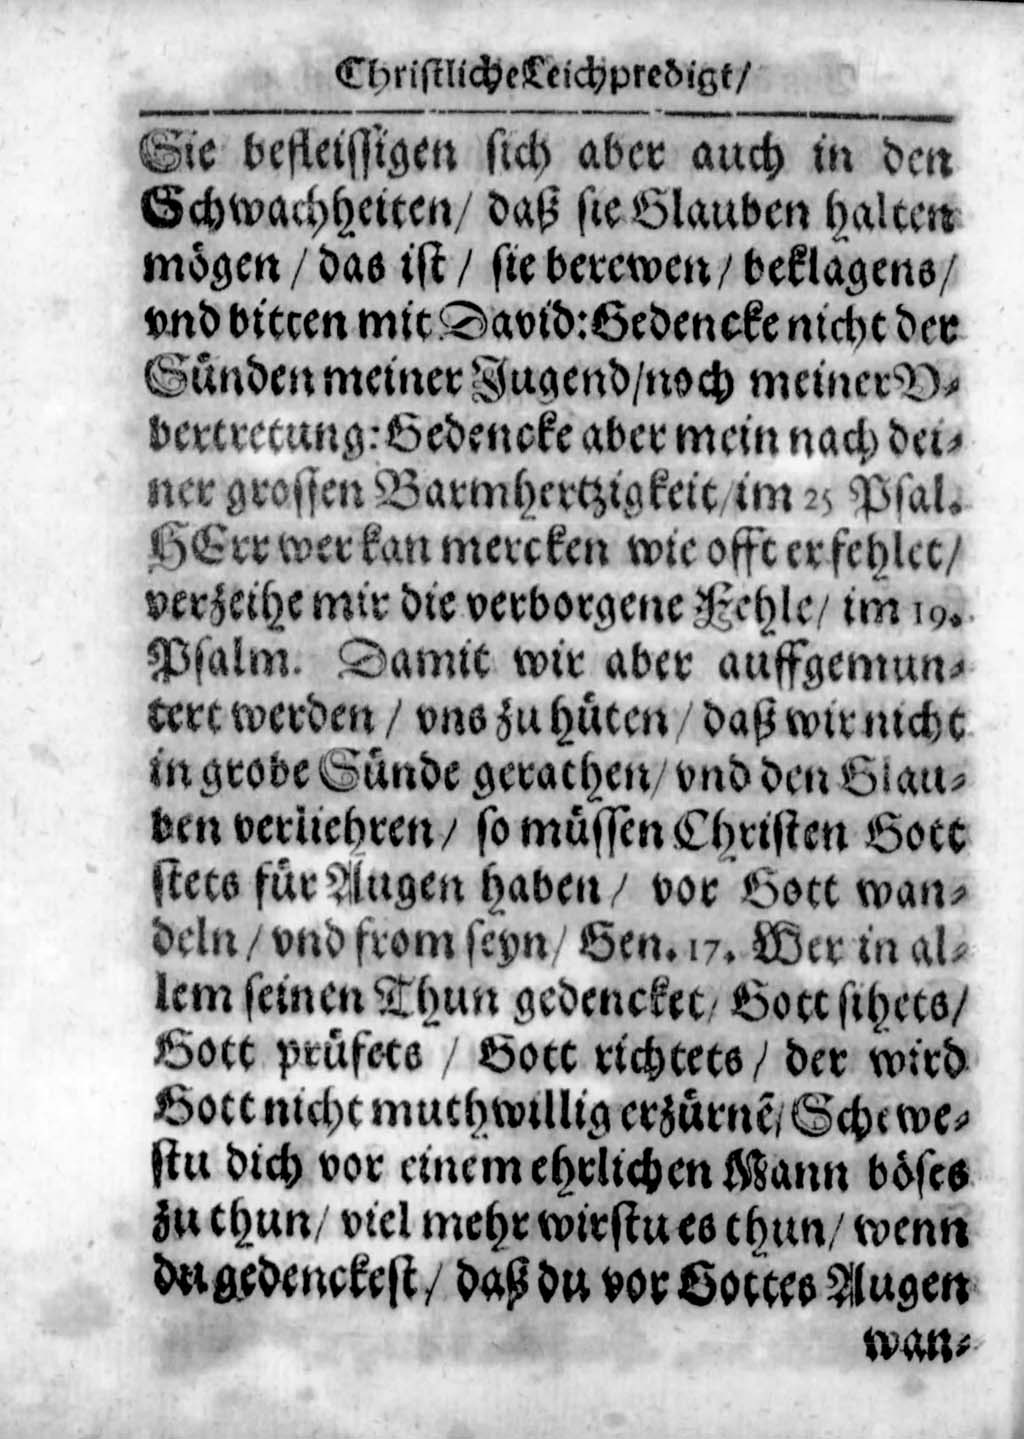 Christliche Leichpredigt/
Sie befleissigen sich aber auch in den
Schwachheiten/ daß sie Glauben halten
mögen / das ist / sie berewen/ beklagens/
vnd bitten mit David: Gedencke nicht der
Sünden meiner Jugend/noch meiner V-
bertretung: Gedencke aber mein nach dei-
ner grossen Barmhertzigkeit/im 25 Psal.
HErr wer kan mercken wie offt er fehlet/
verzeihe mir die verborgene Fehle/ im 19.
Psalm. Damit wir aber auffgemun-
tert werden / vns zu hüten / daß wir nicht
in grobe Sünde gerathen/ vnd den Glau-
ben verliehren/ so müssen Christen Gott
stets für Augen haben/ vor Gott wan-
deln / vnd from seyn/ Gen. 17. Wer in al-
lem seinen Thun gedencket/ Gott sihets/
Gott prüfets / Gott richtets/ der wird
Gott nicht muthwillig erzürnē/ Schewe-
stu dich vor einem ehrlichen Mann böses
zu thun/ viel mehr wirstu es thun/ wenn
du gedenckest/ daß du vor Gottes Augen
wan-